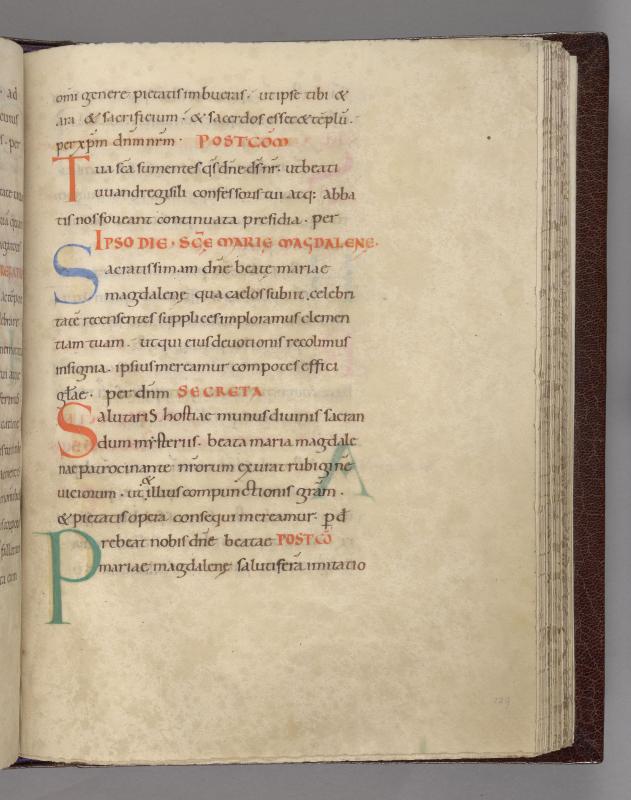 omi genere pietatis imbueras. ut ipse tibi &
ara & sacrificium. & sacerdos esset & tēplū.
per xp̄m dn̄m nr̄m. POSTCOM̄
Tua sc̄a sumentes q̄s dn̄e ds̄ nr̄. ut beati
uuandregisili confessoris tui atq; abba
tis nos foueant continuata presidia. per
IPSO DIE. SC̄Ę MARIĘ MAGDALENĘ.
Sacratissimam dn̄e beatę mariae
magdalenę qua caelos subiit. celebri
tatē recensentes supplices imploramus clemen
tiam tuam. ut qui eius deuotionis recolimus
insignia. ipsius mereamur compotes effici
glae. per dn̄m SECRETA
Salutaris hostiae munus diuinis sacran
dum mysteriis. beata maria magdale
nae patrocinante nr̄orum exurat rubiginē
uiciorum. ut & illius compunctionis grām.
& pietatis opera consequi mereamur. p̄ d̄
Prebeat nobis dn̄e beatae POSTCŌ
mariae magdalenę salutifera imitatio
129